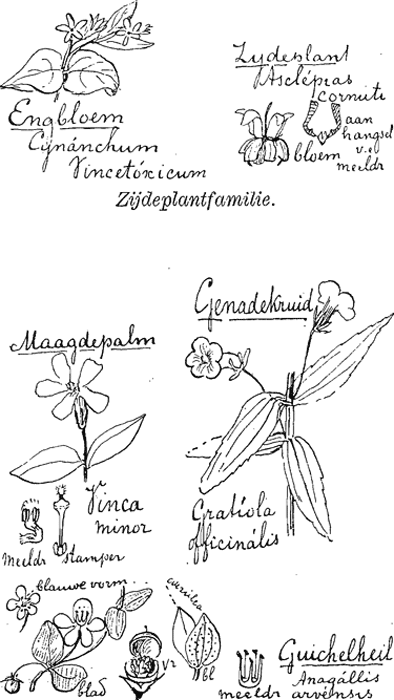 Engbloem
Cynánchum
Vincetóxicum
Zydeplant
Asclépias
cornuti
aan
hangsel
v.e.
meeldr
bloem
Zijdeplantfamilie.
Maagdepalm
Vinca
minor
meeldr stamper
Genadekruid
Gratíola
officinális
blauwe vorm
caerulea
blad
vr
bl
Guichelheil
Anagállis
meeldr arvensis